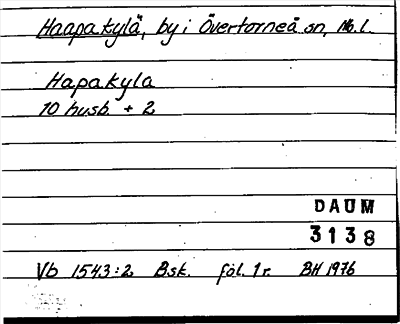 Haapakylä, by i Övertorneå sn, Nb. l.
Hapakyla
10 husb. + 2
DAUM
3138
Vb 1543:2 Bsk. föl. 1 r. BH 1976